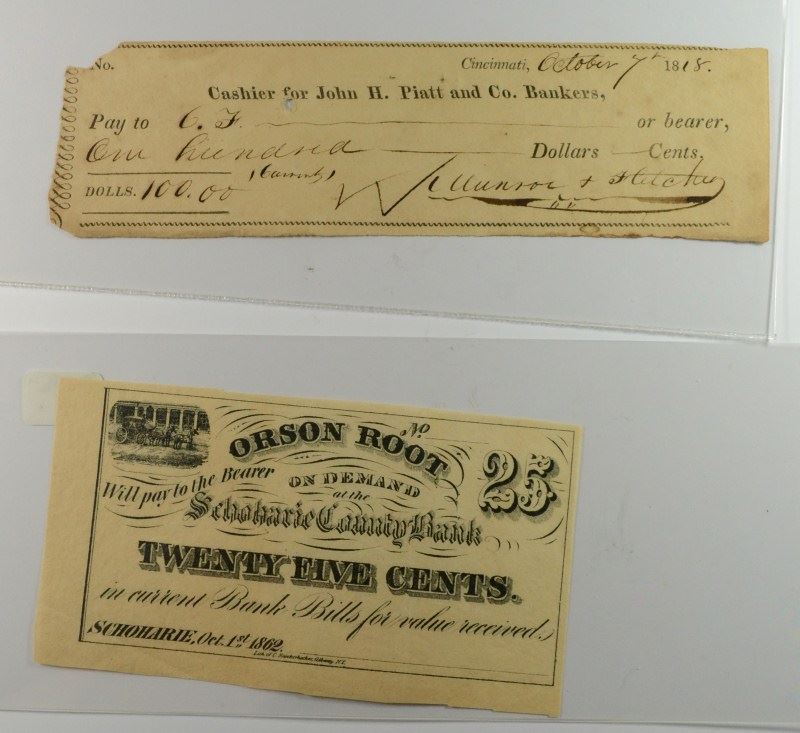 No.
Cincinnati, October 7th 1818.
Cashier for John H. Piatt and Co. Bankers,
Pay to C. F. or bearer,
One hundred Dollars Cents,
(Current)
DOLLS. 100.00
Munroe & Fletcher
No
ORSON ROOT
25
Will pay to the Bearer
ON DEMAND
at the
Schoharie County Bank
TWENTY FIVE CENTS.
in current Bank Bills for value received
SCHOHARIE, Oct. 1st 1862.
Lith. of C. Albany, N.Y.